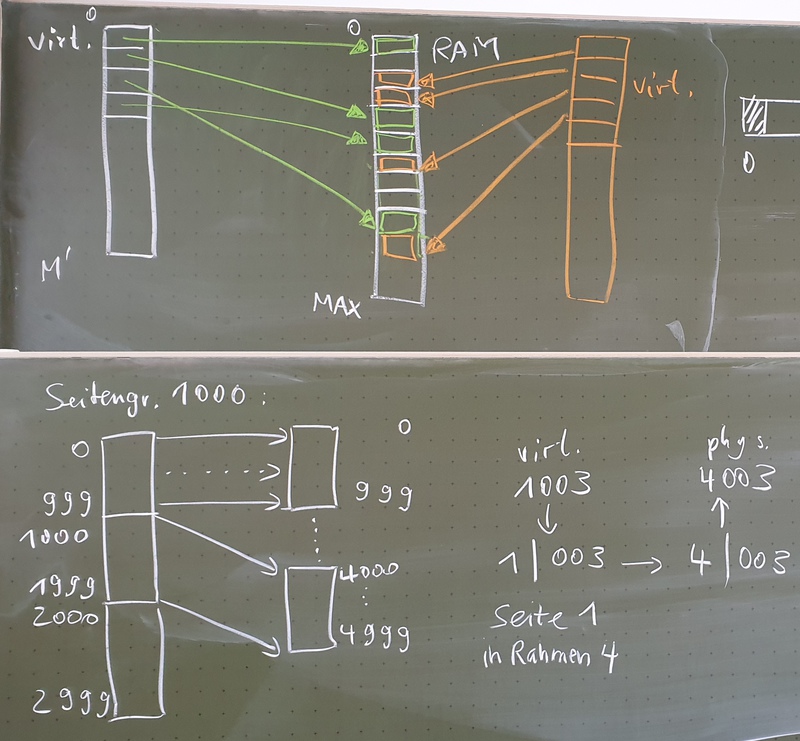 0
virt.
0
RAM
virt.
0
M'
MAX
Seitengr. 1000:
0
999
1000
1999
2000
2999
0
999
4000
4999
virt.
1003
phys.
4003
1|003 → 4|003
Seite 1
in Rahmen 4